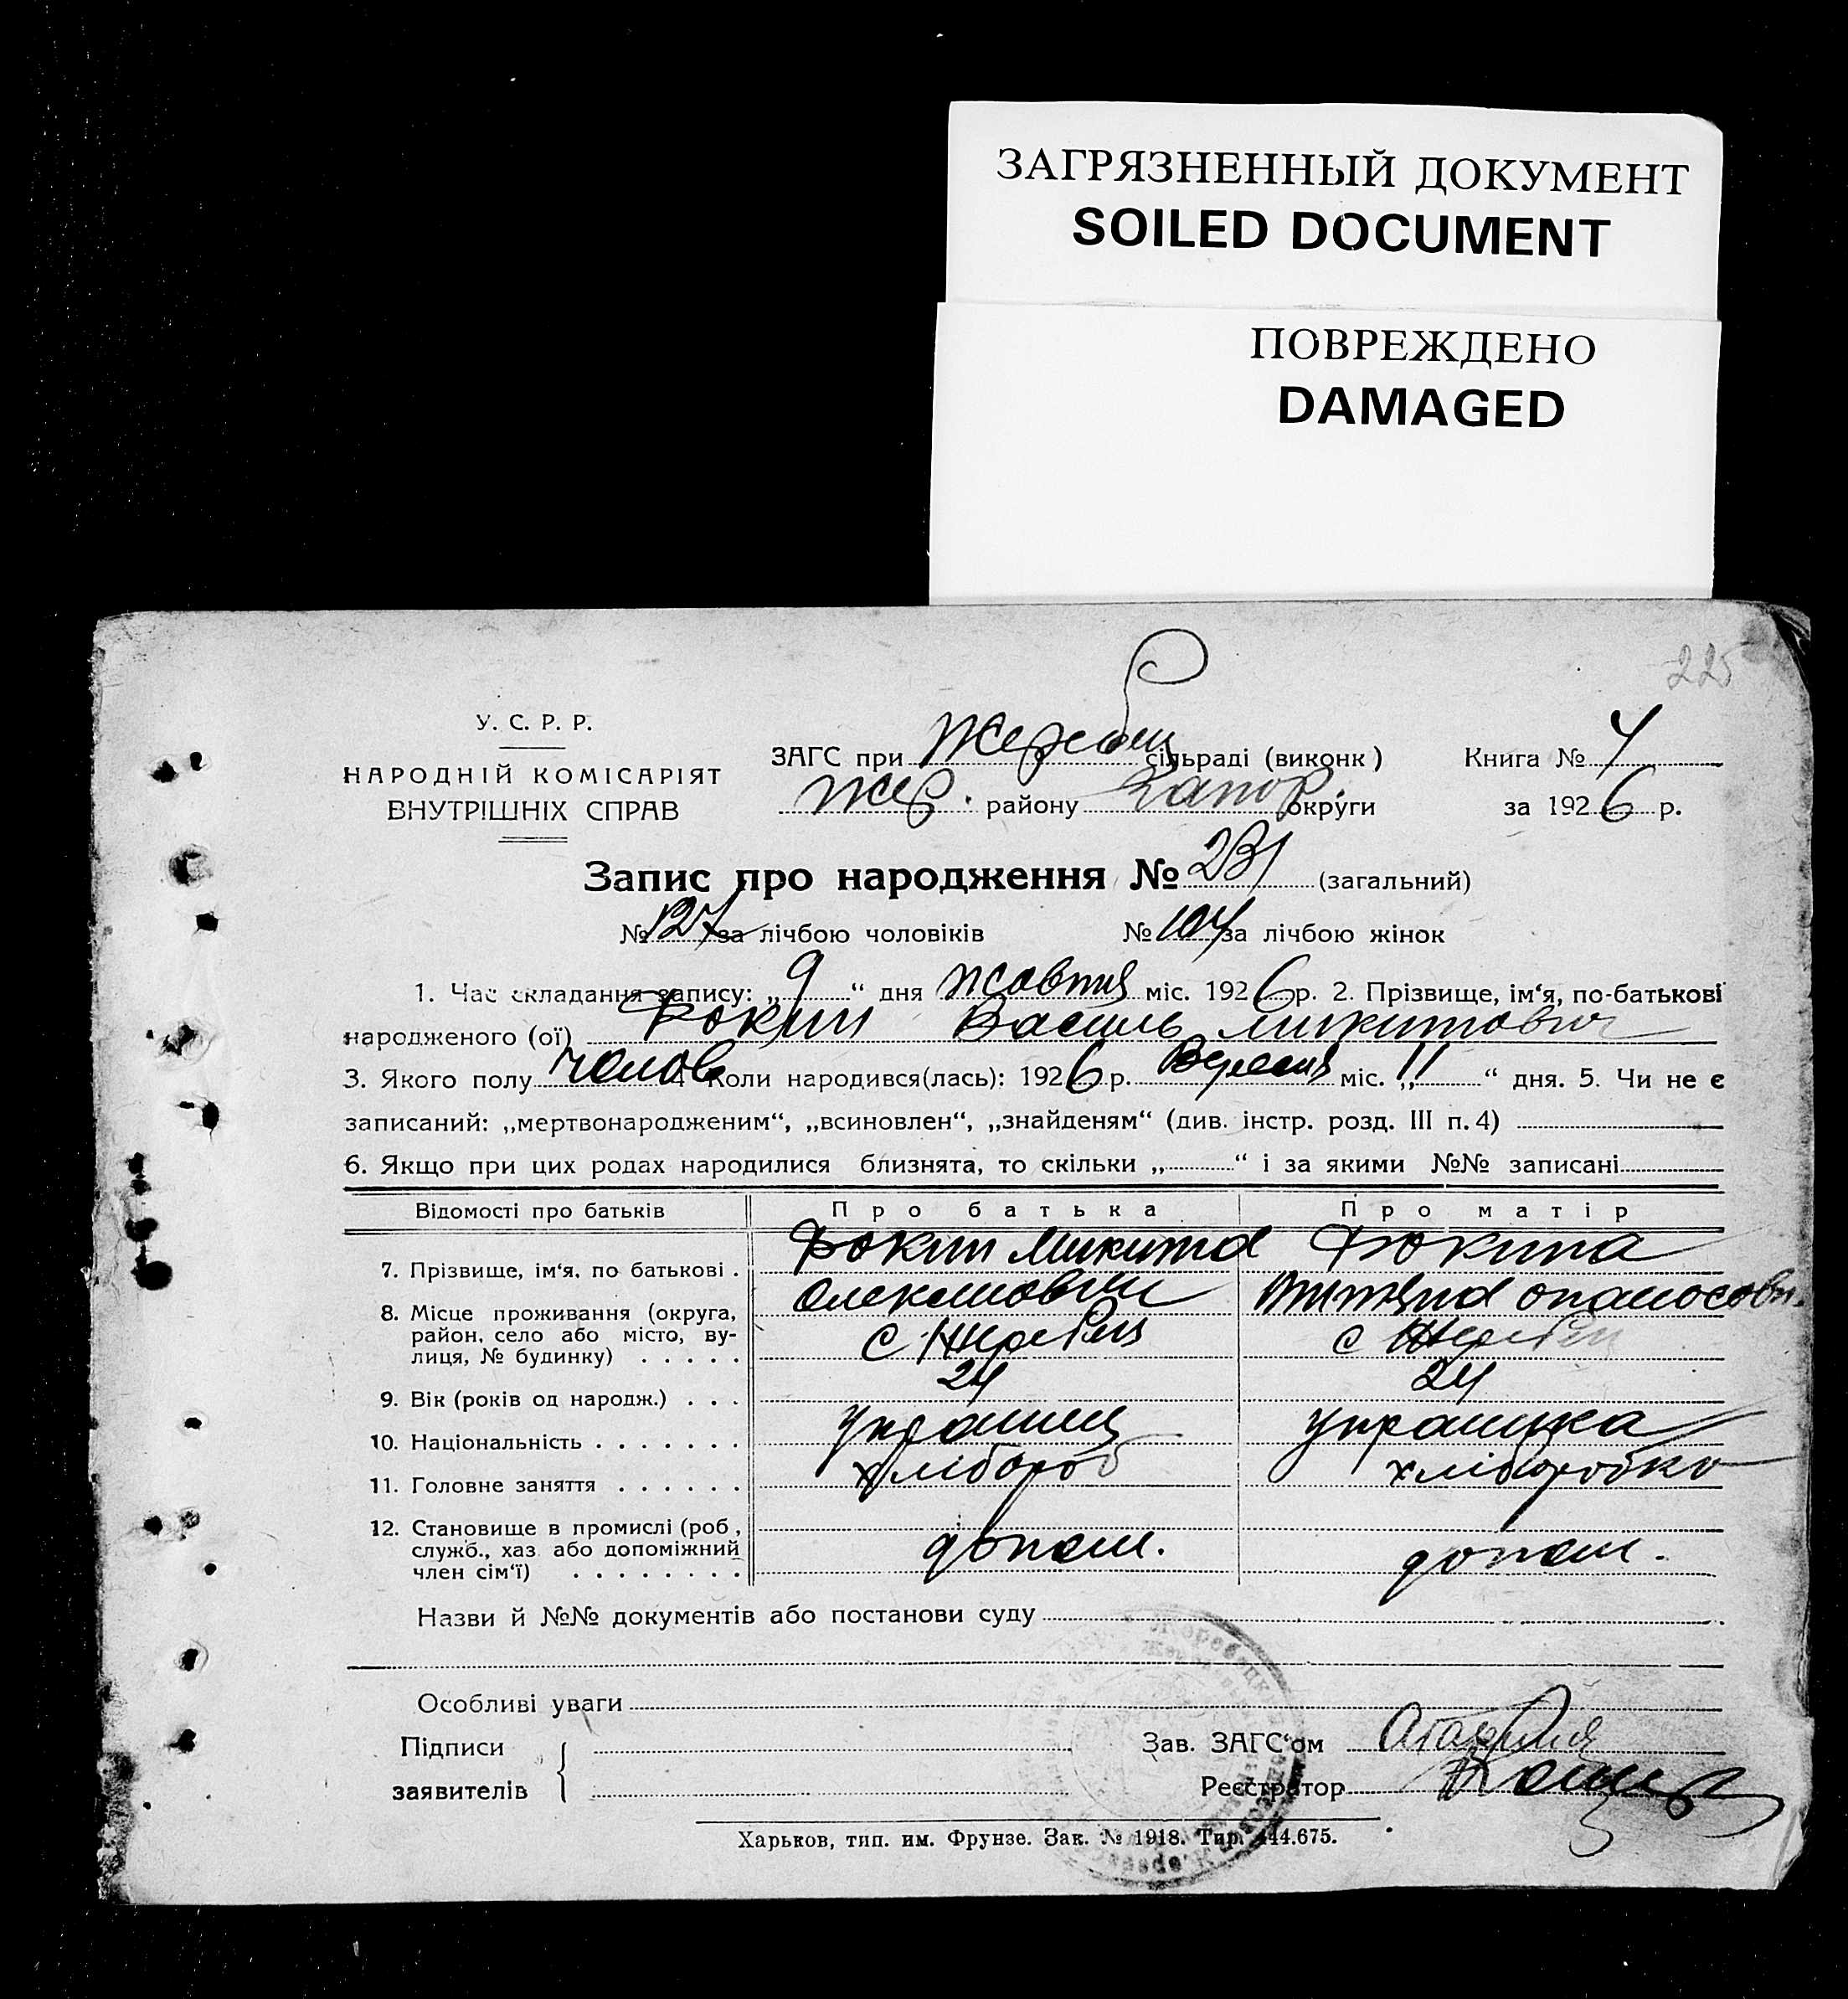 ЗАГРЯЗНЕННЫЙ ДОКУМЕНТ
SOILED DOCUMENT
ПОВРЕЖДЕНО
DAMAGED
225
У. С. Р. Р.
НАРОДНІЙ КОМІСАРІЯТ
ВНУТРІШНІХ СПРАВ
ЗАГС при Жеребец сільраді (виконк)
Жер. району Запор. округи
Книга № 4
за 1926 р.
Запис про народження № 231 (загальний)
№ 127 за лічбою чоловіків № 104 за лічбою жінок
1. Час складання запису: „9“ дня жовтня міс. 1926 р. 2. Прізвище, ім‘я, по-батькові
народженого (ої) Фокин Василь Микитович
3. Якого полу чолов 4 Коли народився(лась): 1926 р. Вересня міс. „11“ дня. 5. Чи не є
записаний: „мертвонародженим“, „всиновлен“, „знайденям“ (див. інстр. розд. III п. 4)
6. Якщо при цих родах народилися близнята, то скільки „ “ і за якими №№ записані
Відомості про батьків Про батька Про матір
7. Прізвище, ім‘я, по батькові . Фокин Микита Фокина
Олексиович опаносовн.
8. Місце проживання (округа, район, село або місто, вулиця, № будинку) . . . . . с Жеребец с Жеребец
9. Вік (років од народж.) . . . 24 24
10. Національність . . . . . . . Украинец украинка
11. Головне заняття . . . . . . хлібороб хліборобка
12. Становище в промислі (роб., служб., хаз. або допоміжний член сім‘ї) . . . . . . . . допом. допом.
Назви й №№ документів або постанови суду
Особливі уваги
Підписи
заявителів
Зав. ЗАГС‘ом
Реєстратор
Харьков, тип. им. Фрунзе. Зак. № 1918. Тир. 444.675.